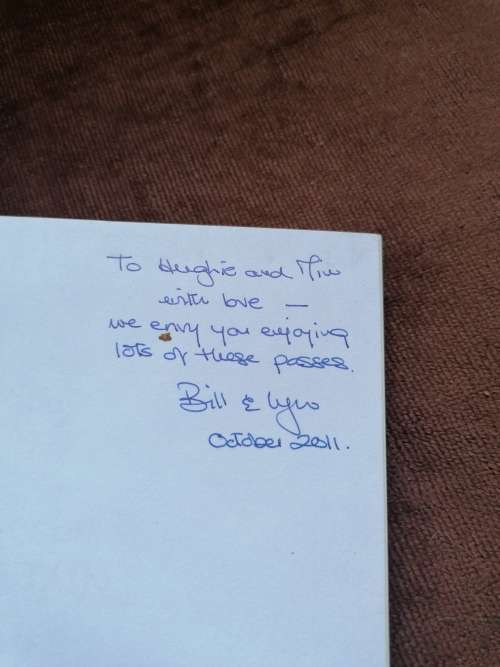 To Hughie and Min
with love —
we envy you enjoying
lots of these passes.
Bill & Lyn
October 2011.